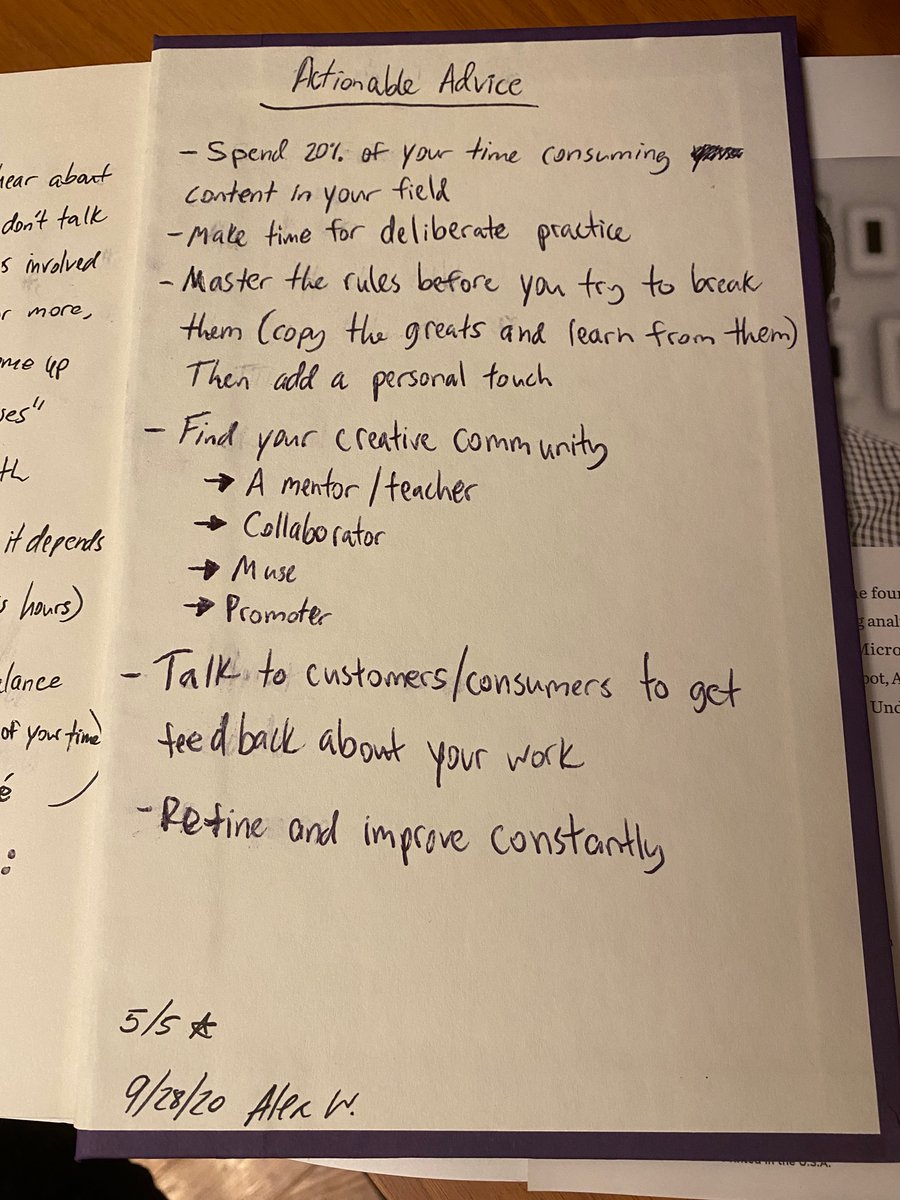 Actionable Advice
- Spend 20% of your time consuming
content in your field
- Make time for deliberate practice
- Master the rules before you try to break
them (copy the greats and learn from them)
Then add a personal touch
- Find your creative community
→ A mentor/teacher
→ Collaborator
→ Muse
→ Promoter
- Talk to customers/consumers to get
feedback about your work
- Refine and improve constantly
5/5 ☆
9/28/20 Alex W.
about
don't talk
s involved
more,
up
it depends
hours)
of your time)
four
Micro
Und
in the U.S.A.